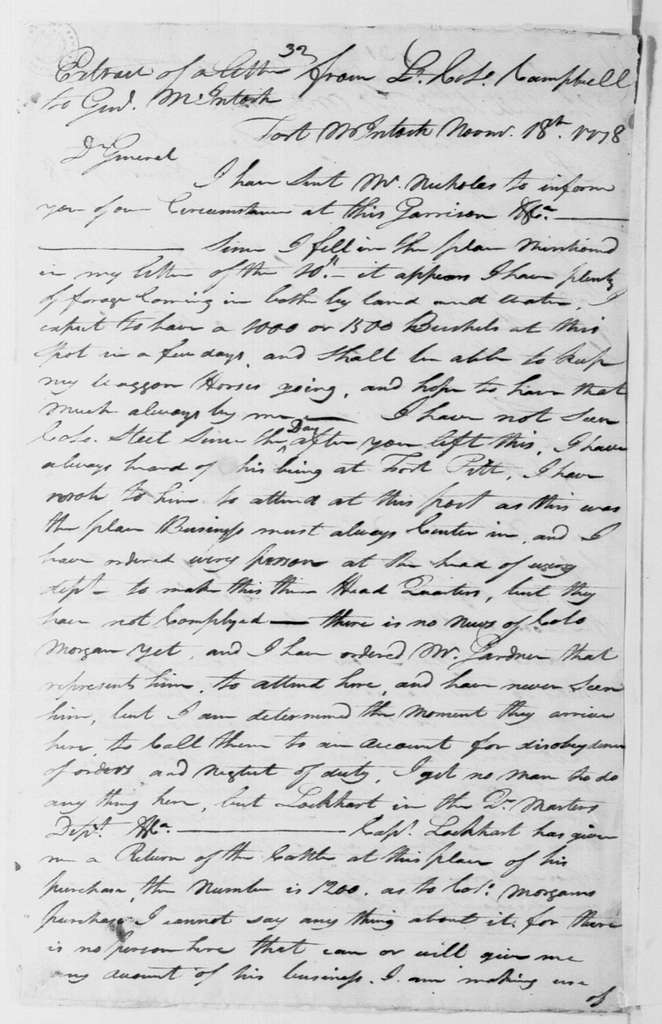 32
Extract of a letter from Lt. Colo. Campbell
to Genl. McIntosh
Fort McIntosh Novmr. 18th. 1778
Dr General
I have sent Mr. Nicholas to inform
you of our Circumstance at this Garrison &Ca.
Since I fell in the plan mentioned
in my letter of the 10th - it appears I have plenty
of forage Coming in both by land and water. I
expect to have a 1000 or 1500 Bushels at this
Spot in a few days, and shall be able to keep
my Waggon Horses going, and hope to have that
much always by me, — I have not seen
Colo. Steel Since the Day after you left this, I have
always heard of his being at Fort Pitt, I have
wrote to him to attend at this post as this was
the place Business must always Center in, and I
have ordered every person at the head of every
dept. to make this their Head Quarters, but they
have not Complyed — there is no News of Colo
Morgan yet, and I have ordered Mr. Gardner that
represents him, to attend here, and have never seen
him, but I am determined the Moment they arrive
here, to Call them to an account for disobeydence
of orders, and Neglect of duty, I get no man to do
any thing here, but Lockhart in the Qr. Masters
Dept. &Ca. — Capt. Lockhart has given
me a Return of the Cattle at this place of his
purchase, the Number is 1200. as to Colo. Morgans
purchase I cannot say any thing about it, for there
is no person here that can or will give me
any account of his business. I am making use
of